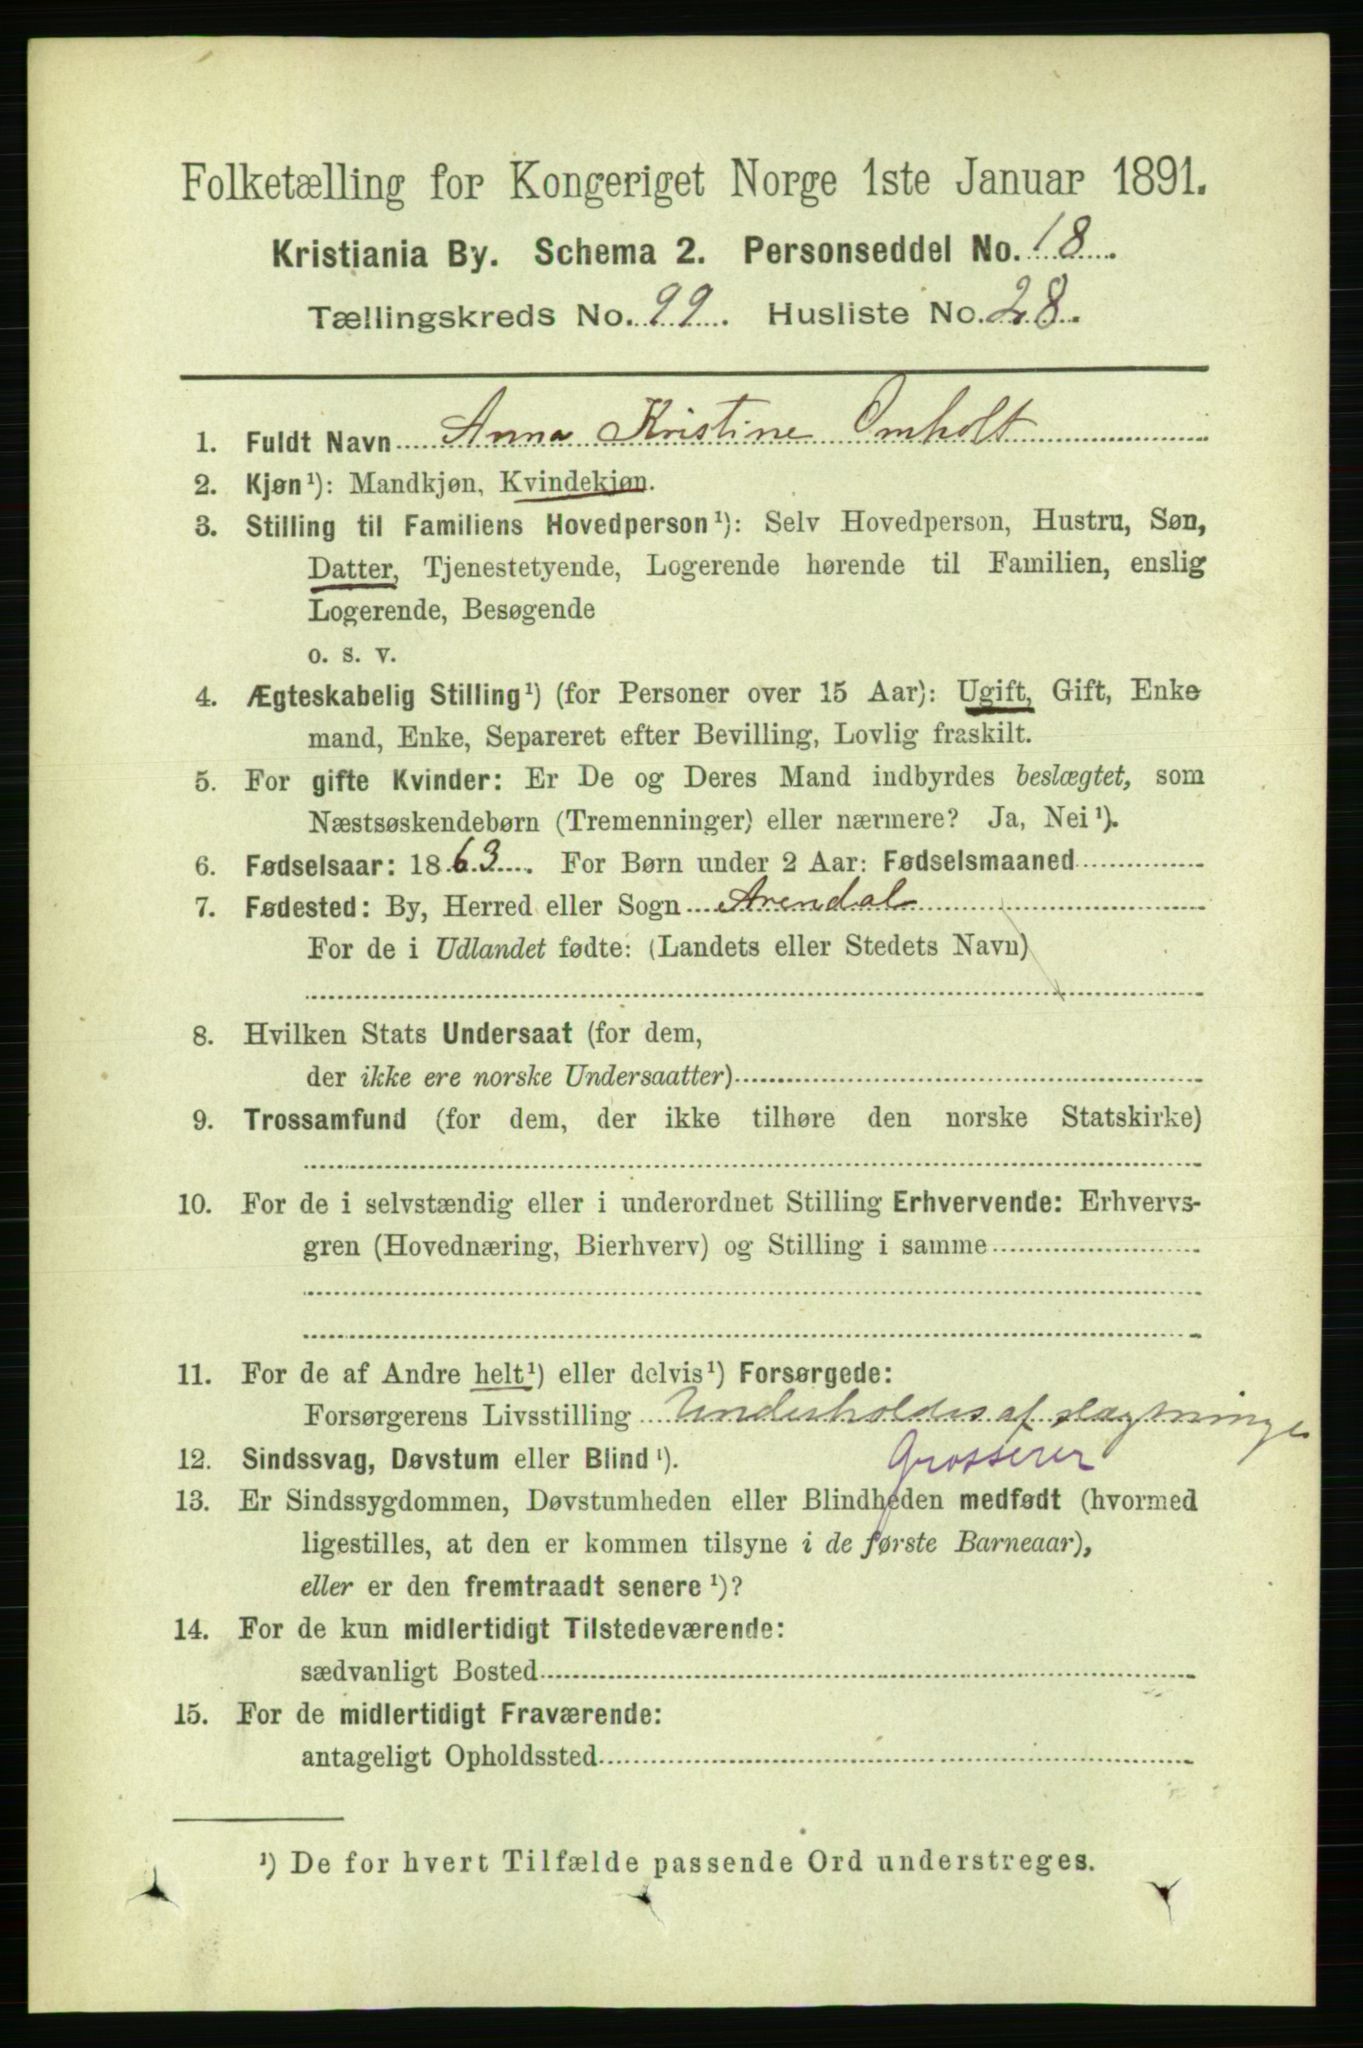 Folketælling for Kongeriget Norge 1ste Januar 1891.
Kristiania By. Schema 2. Personseddel No. 18.
Tællingskreds No. 99. Husliste No. 28.
1. Fuldt Navn Anna Kristine Omholt
2. Kjøn¹): Mandkjøn, Kvindekjøn.
3. Stilling til Familiens Hovedperson¹): Selv Hovedperson, Hustru, Søn,
Datter, Tjenestetyende, Logerende hørende til Familien, enslig
Logerende, Besøgende
o. s. v.
4. Ægteskabelig Stilling¹) (for Personer over 15 Aar): Ugift, Gift, Enke
mand, Enke, Separeret efter Bevilling, Lovlig fraskilt.
5. For gifte Kvinder: Er De og Deres Mand indbyrdes beslægtet, som
Næstsøskendebørn (Tremenninger) eller nærmere? Ja, Nei¹).
6. Fødselsaar: 1863. For Børn under 2 Aar: Fødselsmaaned
7. Fødested: By, Herred eller Sogn Arendal
For de i Udlandet fødte: (Landets eller Stedets Navn)
8. Hvilken Stats Undersaat (for dem,
der ikke ere norske Undersaatter)
9. Trossamfund (for dem, der ikke tilhøre den norske Statskirke)
10. For de i selvstændig eller i underordnet Stilling Erhvervende: Erhvervs-
gren (Hovednæring, Bierhverv) og Stilling i samme
11. For de af Andre helt¹) eller delvis¹) Forsørgede:
Forsørgerens Livsstilling Underholdes af slægtninge
Grosserer
12. Sindssvag, Døvstum eller Blind¹).
13. Er Sindssygdommen, Døvstumheden eller Blindheden medfødt (hvormed
ligestilles, at den er kommen tilsyne i de første Barneaar),
eller er den fremtraadt senere¹)?
14. For de kun midlertidigt Tilstedeværende:
sædvanligt Bosted
15. For de midlertidigt Fraværende:
antageligt Opholdssted
¹) De for hvert Tilfælde passende Ord understreges.